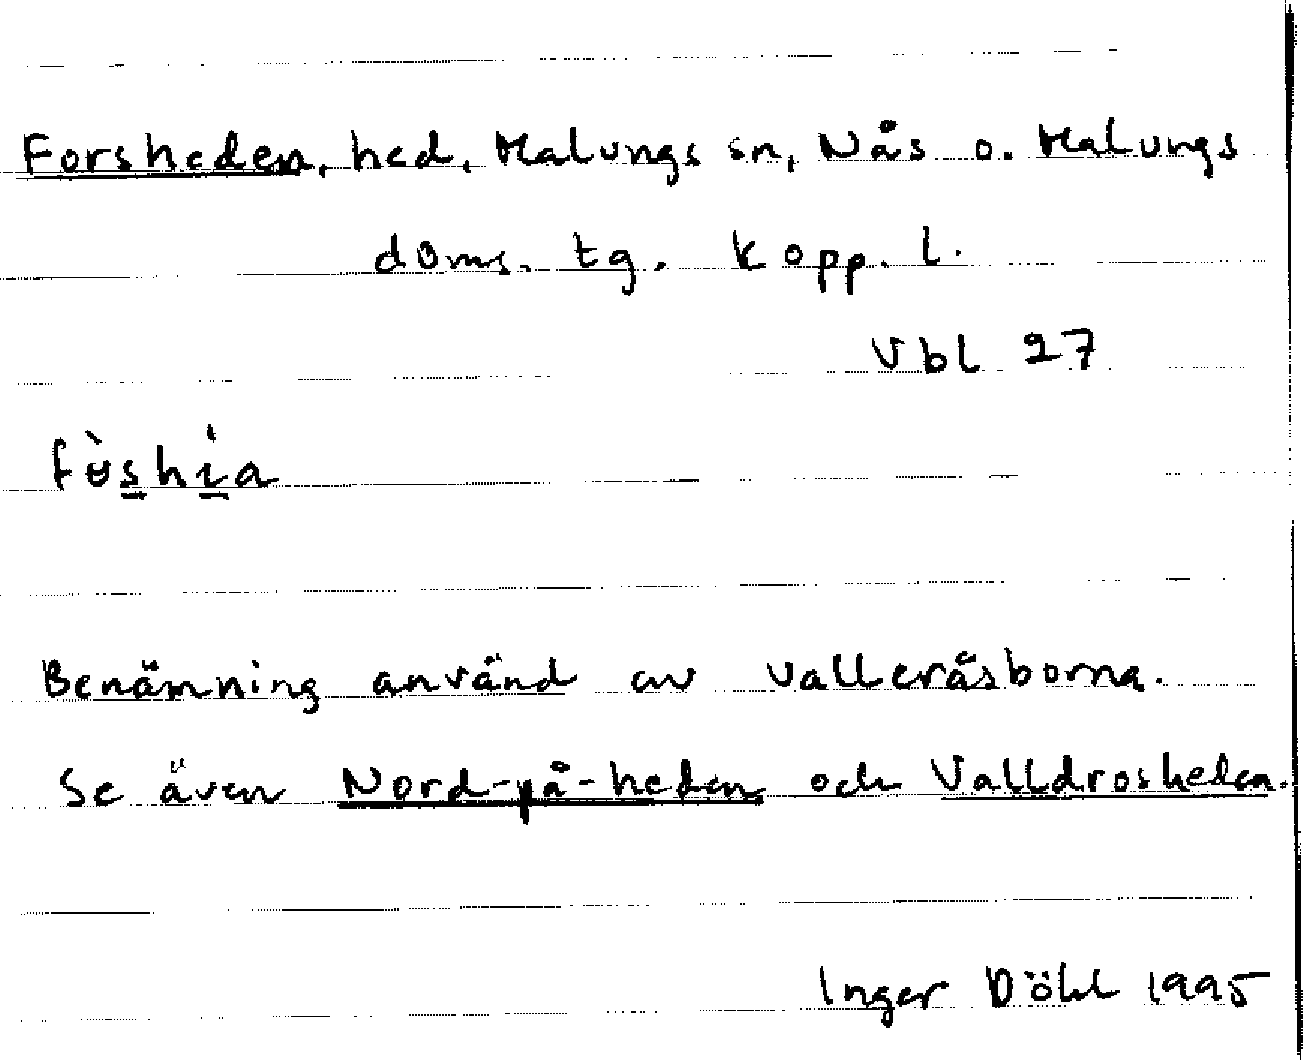 Forsheden, hed, Malungs sn, Nås o. Malungs
doms. tg. Kopp. l.
Vbl 27
Benämning använd av Valleråsborna.
Se även Nord-på-heden och Valldrosheden.
Inger Döhl 1995